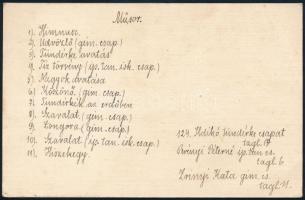 Műsor.
1). Himnusz.
2). Üdvözlő (gim. csap.)
3). Tündérke avatás
4). Tíz törvény (ip. tan. isk. csap.)
5). Nagyok avatása
6). Köszönő. (gim. csap.)
7). Tündérkék az erdőben
8). Szavalat. (gim. csap.)
9). Zongora. (gim. csap.)
10). Szavalat (ip. tan. isk. csap.)
11). Hiszekegy.
124. Ildikó tündérke csapat
tagl. 17
ip. tan. cs.
tagl. 6
Zrínyi Kata gim. cs.
tagl. 11.